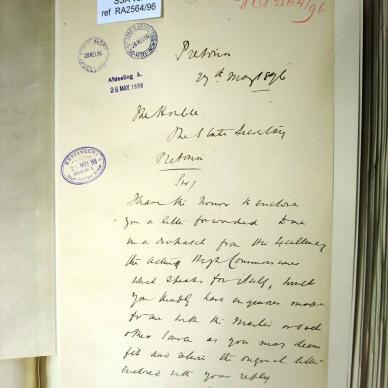 ref RA2564/96
RA 2564/96
28 MEI 96
Afdeeling A.
28. MAY. 1896
ONTVANGEN
MEI 96
Pretoria
27th May 1896
The Honble.
The State Secretary
Pretoria
Sir,
I have the honor to enclose
you a letter forwarded to me
in a despatch from His Excellency
the Acting High Commissioner
which speaks for itself, would
you kindly have enquiries made
for me with the Master or such
other source as you may deem
fit and return the original letter
enclosed with your reply